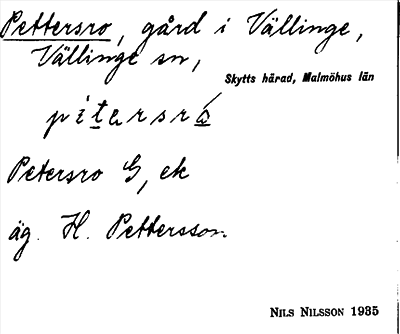 Pettersro, gård i Vällinge,
Vällinge sn,
Skytts härad, Malmöhus län
Petersro G, ek
äg. H. Pettersson
NILS NILSSON 1935